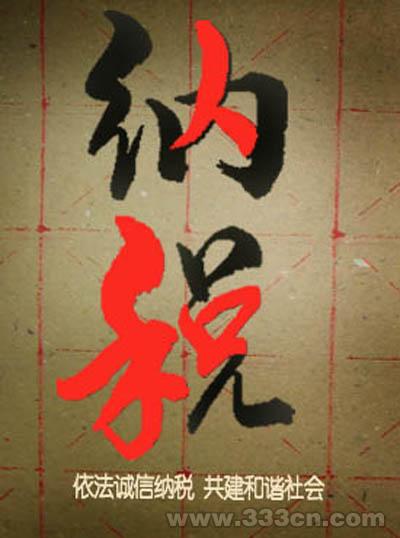 纳
税
依法诚信纳税 共建和谐社会
www.333cn.com